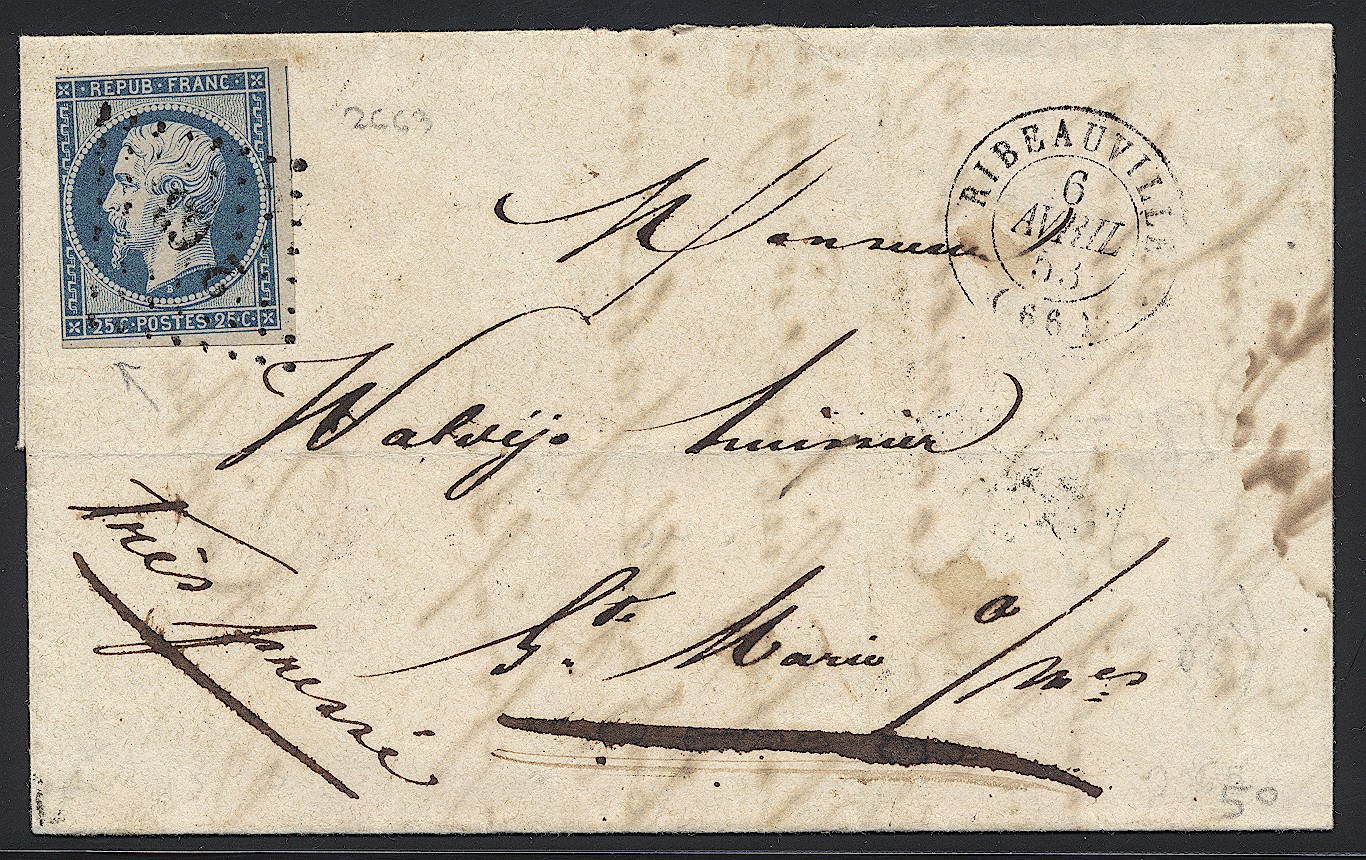 REPUB·FRANC·
25C·POSTES 25C·
2663
RIBEAUVILLE
6
AVRIL
53
(66)
Monsieur
huissier
Très pressé
Ste. Marie a/mes
50